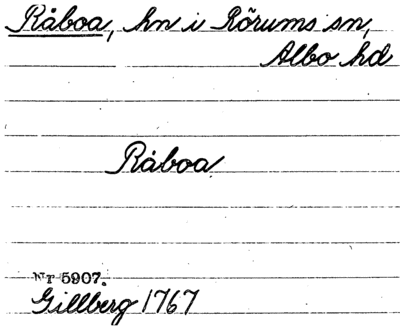 Råboa, hn i Rörums sn,
Albo hd
Råboa
Nr 5907.
Gillberg 1767